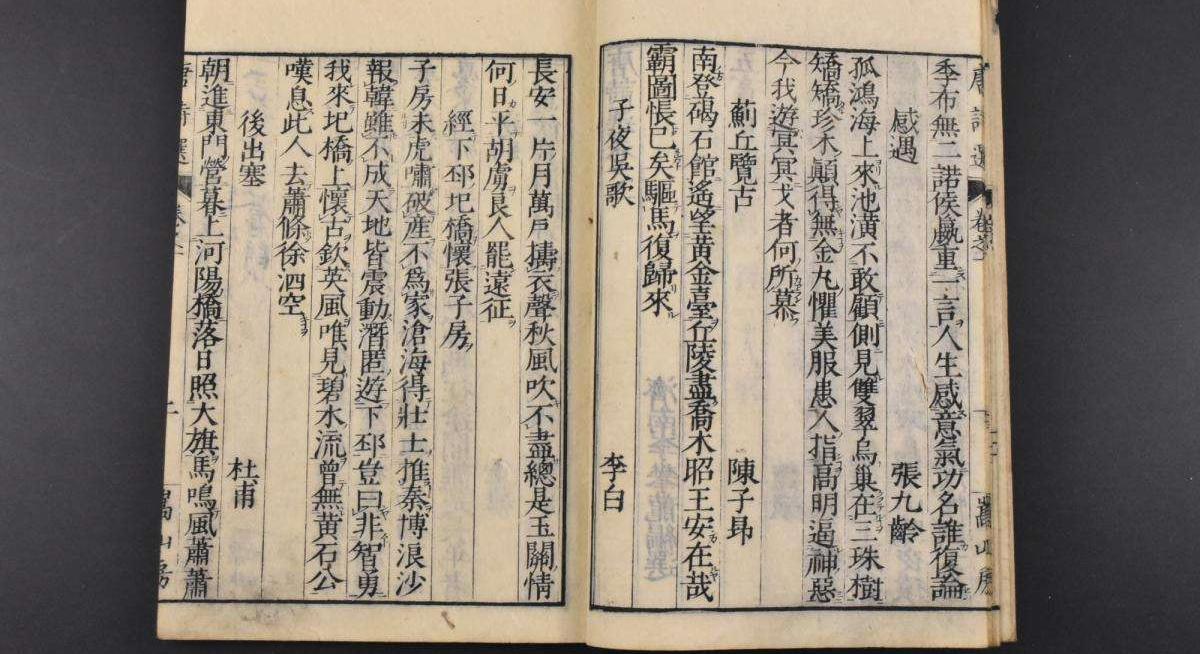 唐詩選 嵩山房
季布無二諾侯嬴重一言人生感意氣功名誰復論
感遇 張九齡
孤鴻海上來池潢不敢顧側見雙翠鳥巢在三珠樹
矯矯珍木顛得無金丸懼美服患人指高明逼神惡
今我遊冥冥弋者何所慕
薊丘覽古 陳子昂
南登碣石館遙望黃金臺丘陵盡喬木昭王安在哉
霸圖悵已矣驅馬復歸來
子夜吳歌 李白
長安一片月萬戶擣衣聲秋風吹不盡總是玉關情
何日平胡虜良人罷遠征
經下邳圯橋懷張子房
子房未虎嘯破產不爲家滄海得壯士推秦博浪沙
報韓雖不成天地皆震動潛匿遊下邳豈曰非智勇
我來圯橋上懷古欽英風唯見碧水流曾無黃石公
嘆息此人去蕭條徐泗空
後出塞 杜甫
朝進東門營暮上河陽橋落日照大旗馬鳴風蕭蕭
唐詩選 嵩山房